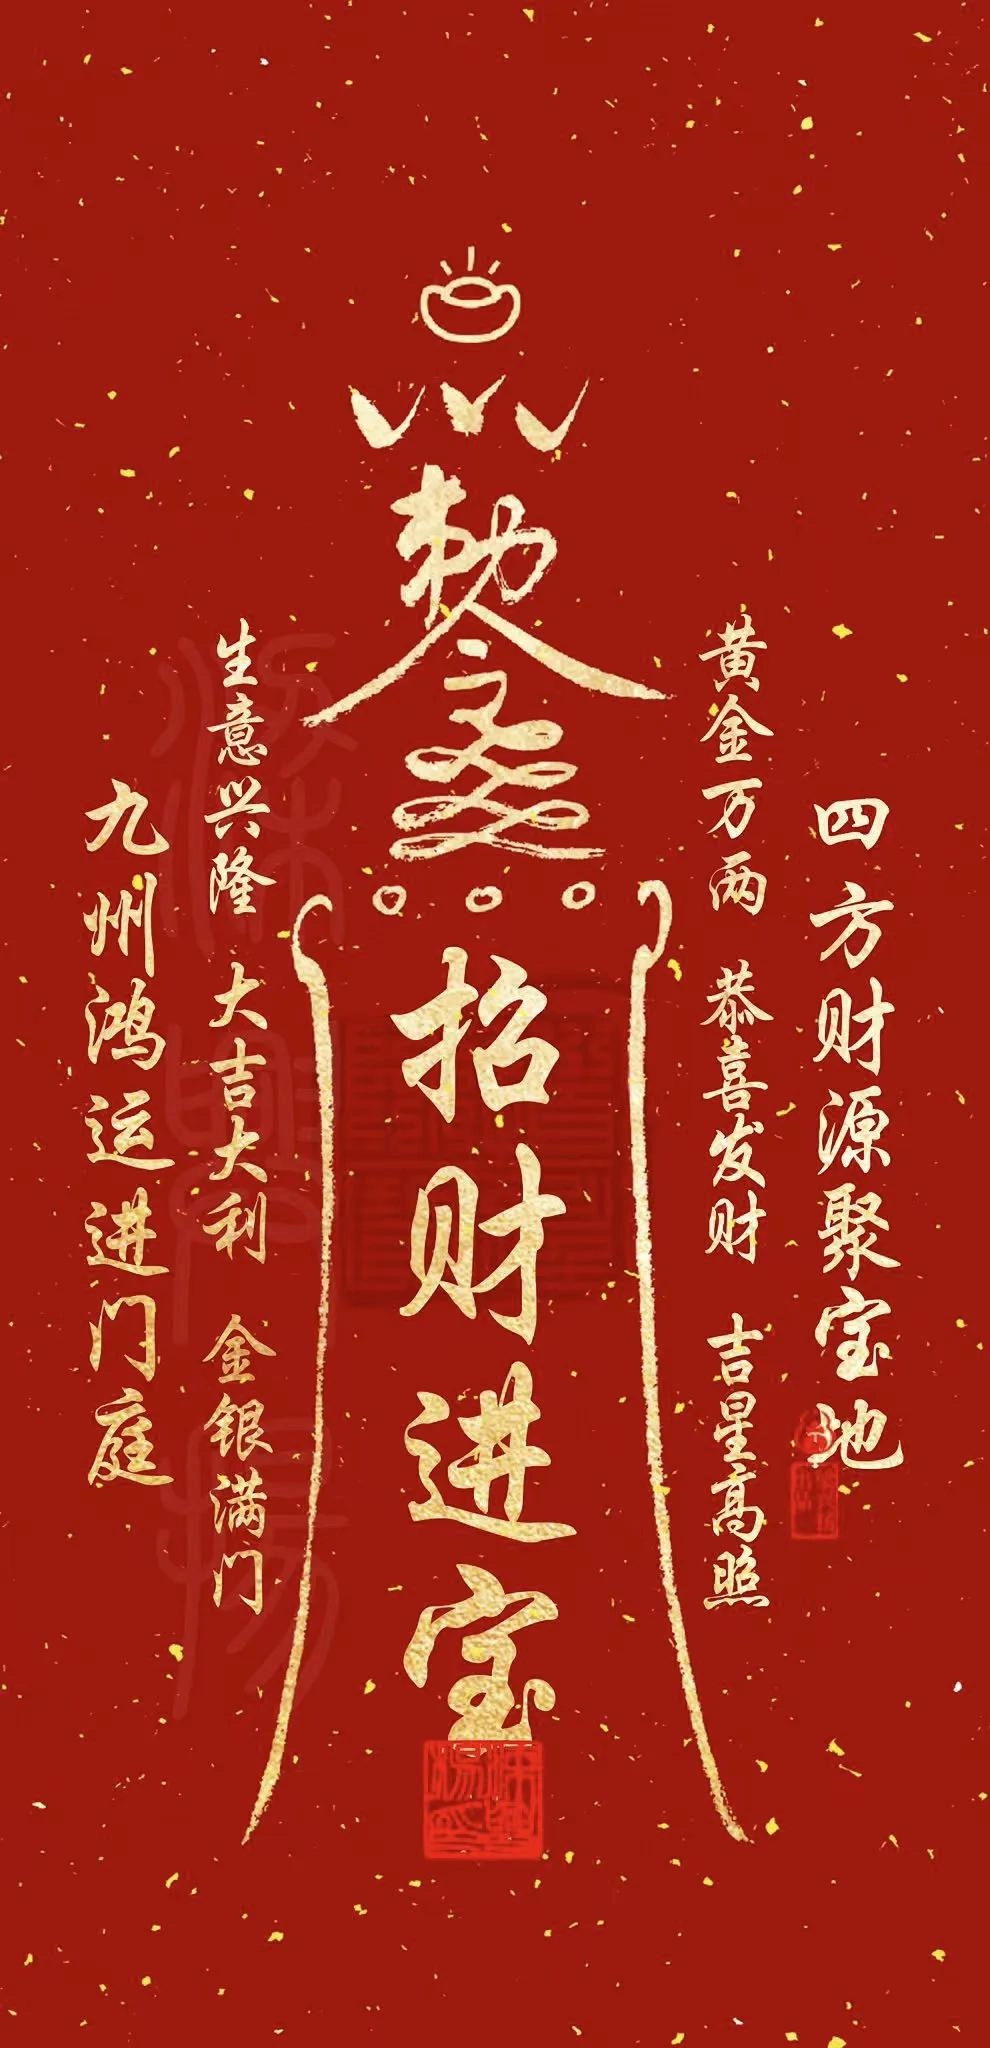 敕令
招财进宝
四方财源聚宝地
黄金万两 恭喜发财 吉星高照
生意兴隆 大吉大利 金银满门
九州鸿运进门庭